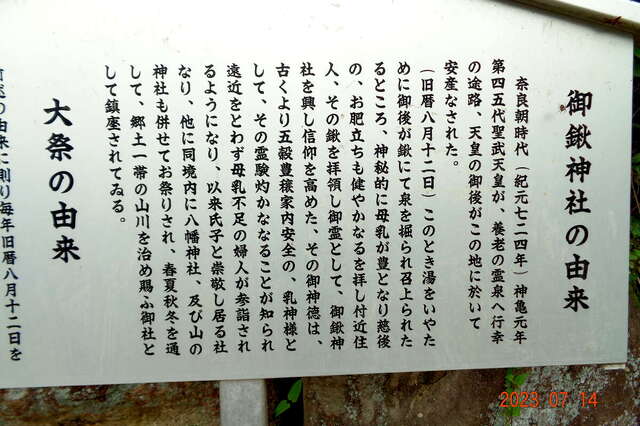 御鍬神社の由来
奈良朝時代（紀元七二四年）神亀元年
第四五代聖武天皇が、養老の霊泉へ行幸
の途路、天皇の御後がこの地に於いて
安産なされた。
（旧暦八月十二日）このとき湯をいやた
めに御後が鍬にて泉を掘られ召上られた
るところ、神秘的に母乳が豊となり慈後
の、お肥立ちも健やかなるを拝し付近住
人、その鍬を拝領し御霊として、御鍬神
社を興し信仰を高めた、その御神徳は、
古くより五穀豊穣家内安全の、乳神様と
して、その霊験灼かななることが知られ
遠近をとわず母乳不足の婦人が参詣され
るようになり、以来氏子と崇敬し居る社
なり、他に同境内に八幡神社、及び山の
神社も併せてお祭りされ、春夏秋冬を通
して、郷土一帯の山川を治め賜ふ御社と
して鎮座されてゐる。
大祭の由来
の由来に則り毎年旧暦八月十二日を
2023.07.14